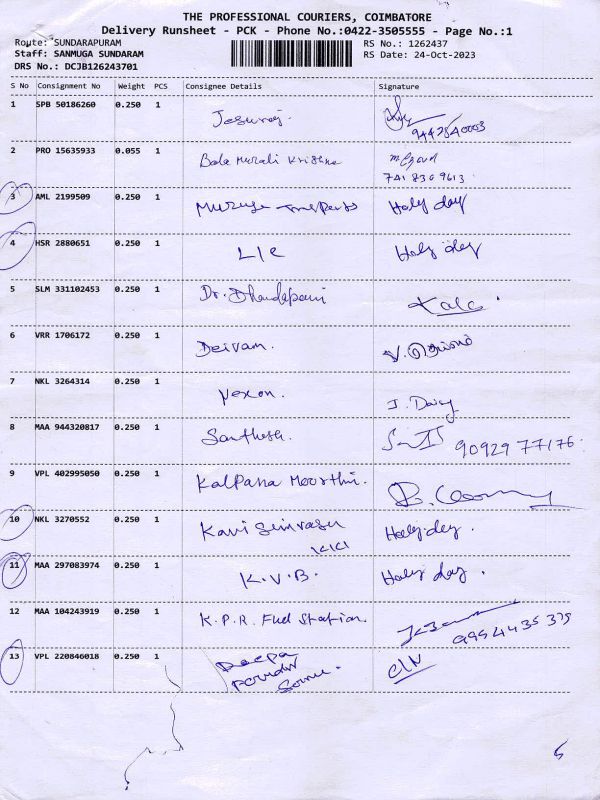 THE PROFESSIONAL COURIERS, COIMBATORE
Delivery Runsheet - PCK - Phone No.:0422-3505555 - Page No.:1
Route: SUNDARAPURAM
Staff: SANMUGA SUNDARAM
DRS No.: DCJB126243701
RS No.: 1262437
RS Date: 24-Oct-2023
S No Consignment No Weight PCS Consignee Details Signature
1 SPB 50186260 0.250 1 Jesuraj.
9442840003
2 PRO 15635933 0.055 1 Bala Murali Krishna
7418309613
3 AML 2199509 0.250 1 Holy day
4 HSR 2880651 0.250 1 LIC Holy day
5 SLM 331102453 0.250 1 Dr. Dhandapani Kala.
6 VRR 1706172 0.250 1 Deivam.
7 NKL 3264314 0.250 1 J. Daisy
8 MAA 944320817 0.250 1 Santhosh. 90929 77176.
9 VPL 402995050 0.250 1 Kalpana Moorthi.
10 NKL 3270552 0.250 1 Holy day.
11 MAA 297083974 0.250 1 K.V.B. Holy day.
12 MAA 104243919 0.250 1 K.P.R. Fuel Station.
9954435375
13 VPL 220846018 0.250 1 Deepa
5